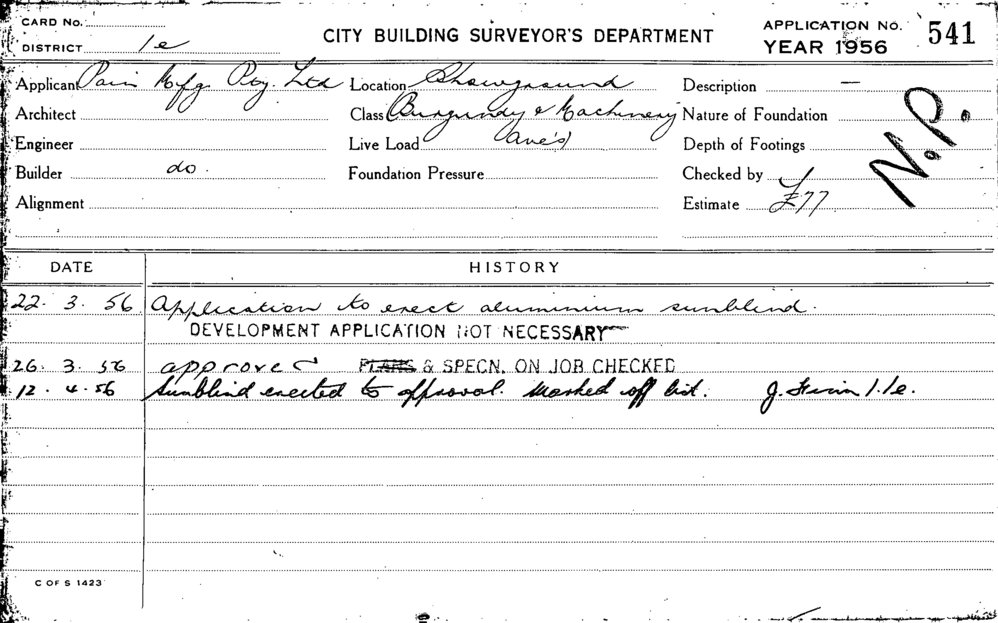 CARD No.
DISTRICT 1e
CITY BUILDING SURVEYOR'S DEPARTMENT
APPLICATION No. 541
YEAR 1956
Applicant Pain Mfg. Pty. Ltd Location Showground Description —
Architect Class (Burgundy & Machinery Nature of Foundation
Engineer Live Load Ave's) Depth of Footings
Builder do. Foundation Pressure Checked by
Alignment Estimate £77
N.P.
DATE HISTORY
22. 3. 56 Application to erect aluminium sunblind.
DEVELOPMENT APPLICATION NOT NECESSARY
26. 3. 56 approved PLANS & SPECN. ON JOB CHECKED
12. 4. 56 Sunblind erected to approval. Marked off list. J. 1.1e.
C OF S 1423